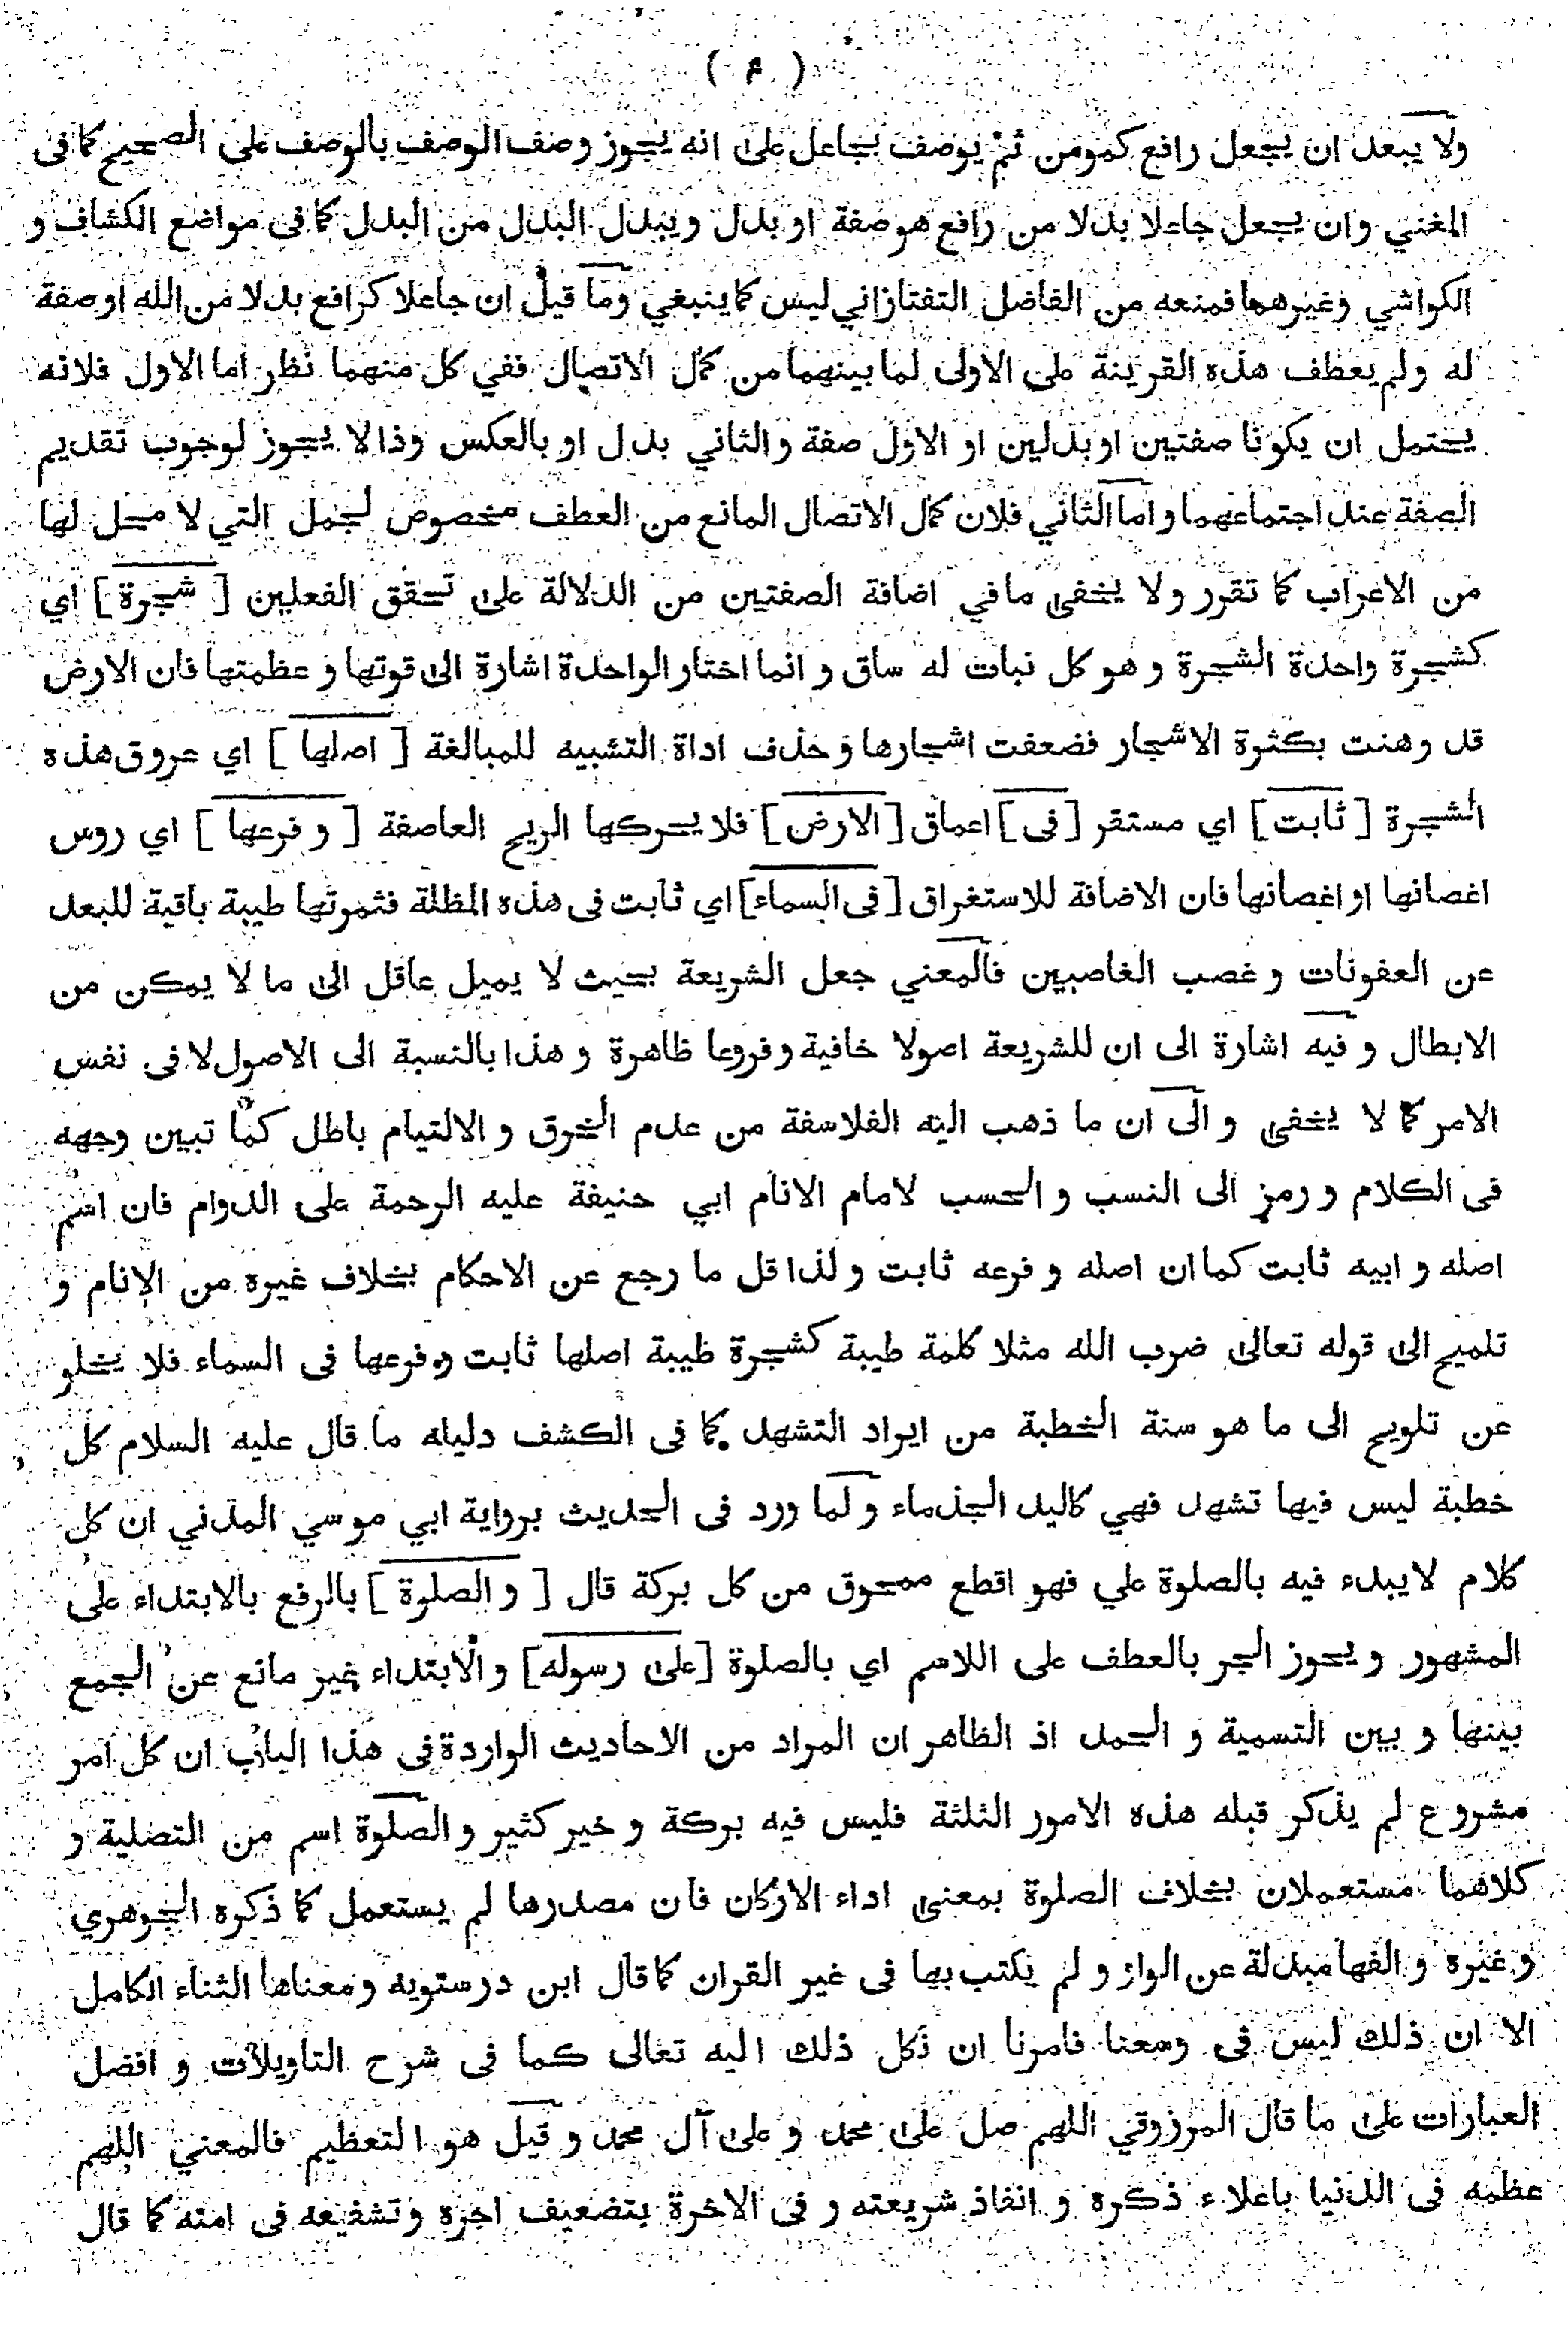 ( ۴ )
ولا يبعد ان يجعل رافع كمومن ثم يوصف بجاعل على انه يجوز وصف الوصف بالوصف على الصحيح كما فى
المغني وان يجعل جاعلا بدلا من رافع هو صفة او بدل ويبدل البدل من البدل كما فى مواضع الكشاف و
الكواشي وغيرهما فمنعه من الفاضل التفتازاني ليس كما ينبغي وما قيل ان جاعلا كرافع بدلا من الله او صفة
له ولم يعطف هذه القرينة على الاولى لما بينهما من كمال الاتصال ففي كل منهما نظر اما الاول فلانه
يحتمل ان يكونا صفتين او بدلين او الاول صفة والثاني بدل او بالعكس وذا لا يجوز لوجوب تقديم
الصفة عند اجتماعهما و اما الثاني فلان كمال الاتصال المانع من العطف مخصوص لجمل التي لا محل لها
من الاعراب كما تقرر ولا يخفى ما في اضافة الصفتين من الدلالة على تحقق الفعلين [ شجرة ] اي
كشجرة واحدة الشجرة و هو كل نبات له ساق و انما اختار الواحدة اشارة الى قوتها و عظمتها فان الارض
قد وهنت بكثرة الاشجار فضعفت اشجارها و حذف اداة التشبيه للمبالغة [ اصلها ] اي عروق هذه
الشجرة [ ثابت ] اي مستقر [ فى ] اعماق [ الارض ] فلا يحركها الريح العاصفة [ و فرعها ] اي روس
اغصانها او اغصانها فان الاضافة للاستغراق [ فى السماء ] اي ثابت فى هذه المظلة فثمرتها طيبة باقية للبعد
عن العفونات و غصب الغاصبين فالمعني جعل الشريعة بحيث لا يميل عاقل الى ما لا يمكن من
الابطال و فيه اشارة الى ان للشريعة اصولا خافية و فروعا ظاهرة و هذا بالنسبة الى الاصول لا فى نفس
الامر كما لا يخفى و الى ان ما ذهب اليه الفلاسفة من عدم الخرق و الالتيام باطل كما تبين وجهه
فى الكلام و رمز الى النسب و الحسب لامام الانام ابي حنيفة عليه الرحمة على الدوام فان اسم
اصله و ابيه ثابت كما ان اصله و فرعه ثابت و لذا قل ما رجع عن الاحكام بخلاف غيره من الانام و
تلميح الى قوله تعالى ضرب الله مثلا كلمة طيبة كشجرة طيبة اصلها ثابت و فرعها فى السماء فلا يخلو
عن تلويح الى ما هو سنة الخطبة من ايراد التشهد كما فى الكشف دليله ما قال عليه السلام كل
خطبة ليس فيها تشهد فهي كاليد الجذماء و لما ورد فى الحديث برواية ابي موسي المدني ان كل
كلام لا يبدء فيه بالصلوة علي فهو اقطع ممحوق من كل بركة قال [ و الصلوة ] بالرفع بالابتداء على
المشهور و يجوز الجر بالعطف على اللاسم اي بالصلوة [ على رسوله ] و الابتداء غير مانع عن الجمع
بينها و بين التسمية و الحمد اذ الظاهر ان المراد من الاحاديث الواردة فى هذا الباب ان كل امر
مشروع لم يذكر قبله هذه الامور الثلثة فليس فيه بركة و خير كثير و الصلوة اسم من التصلية و
كلاهما مستعملان بخلاف الصلوة بمعنى اداء الاركان فان مصدرها لم يستعمل كما ذكره الجوهري
و غيره و الفها مبدلة عن الواو و لم يكتب بها فى غير القران كما قال ابن درستويه و معناها الثناء الكامل
الا ان ذلك ليس فى وسعنا فامرنا ان نكل ذلك اليه تعالى كما فى شرح التاويلات و افضل
العبارات على ما قال المرزوقي اللهم صل على محمد و على آل محمد و قيل هو التعظيم فالمعني اللهم
عظمه فى الدنيا باعلاء ذكره و انفاذ شريعته و فى الاخرة بتضعيف اجره و تشفيعه فى امته كما قال